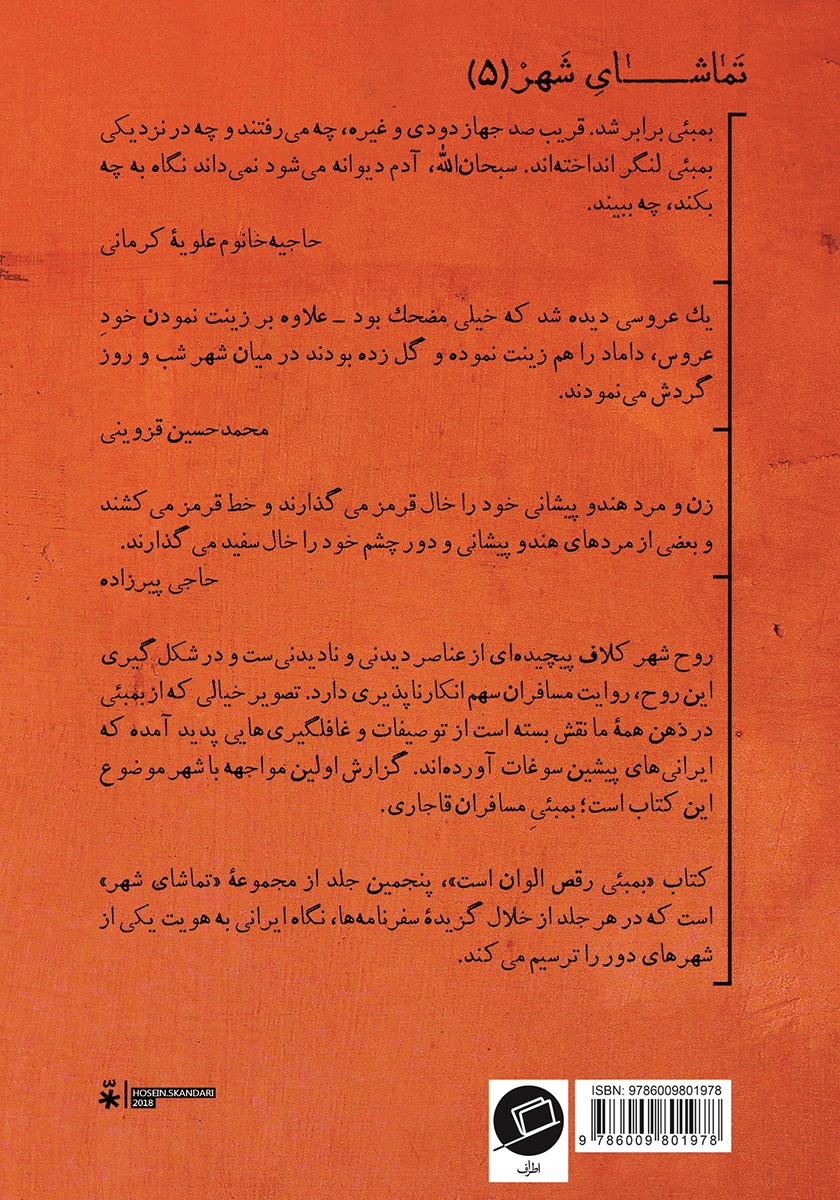 تَمٰاشــــــایِ شَهرْ (۵)
بمبئی برابر شد. قریب صد جهاز دودی و غیره، چه می‌رفتند و چه در نزدیکی
بمبئی لنگر انداخته‌اند. سبحان‌الله، آدم دیوانه می‌شود نمی‌داند نگاه به چه
بکند، چه ببیند.
حاجیه‌خانوم علویهٔ کرمانی
یك عروسی دیده شد که خیلی مضحك بود ـ علاوه بر زینت نمودن خودِ
عروس، داماد را هم زینت نموده و گل زده بودند در میان شهر شب و روز
گردش می‌نمودند.
محمدحسین قزوینی
زن و مرد هندو پیشانی خود را خال قرمز می گذارند و خط قرمز می کشند
و بعضی از مردهای هندو پیشانی و دور چشم خود را خال سفید می گذارند.
حاجی پیرزاده
روح شهر کلاف پیچیده‌ای از عناصر دیدنی و نادیدنی‌ست و در شکل گیری
این روح، روایت مسافران سهم انکارناپذیری دارد. تصویر خیالی که از بمبئی
در ذهن همهٔ ما نقش بسته است از توصیفات و غافلگیری‌هایی پدید آمده که
ایرانی‌های پیشین سوغات آورده‌اند. گزارش اولین مواجهه با شهر موضوع
این کتاب است؛ بمبئیِ مسافران قاجاری.
کتاب «بمبئی رقص الوان است»، پنجمین جلد از مجموعهٔ «تماشای شهر»
است که در هر جلد از خلال گزیدهٔ سفرنامه‌ها، نگاه ایرانی به هویت یکی از
شهرهای دور را ترسیم می کند.
HOSEIN.SKANDARI
2018
اطراف
ISBN: 9786009801978
9 786009 801978